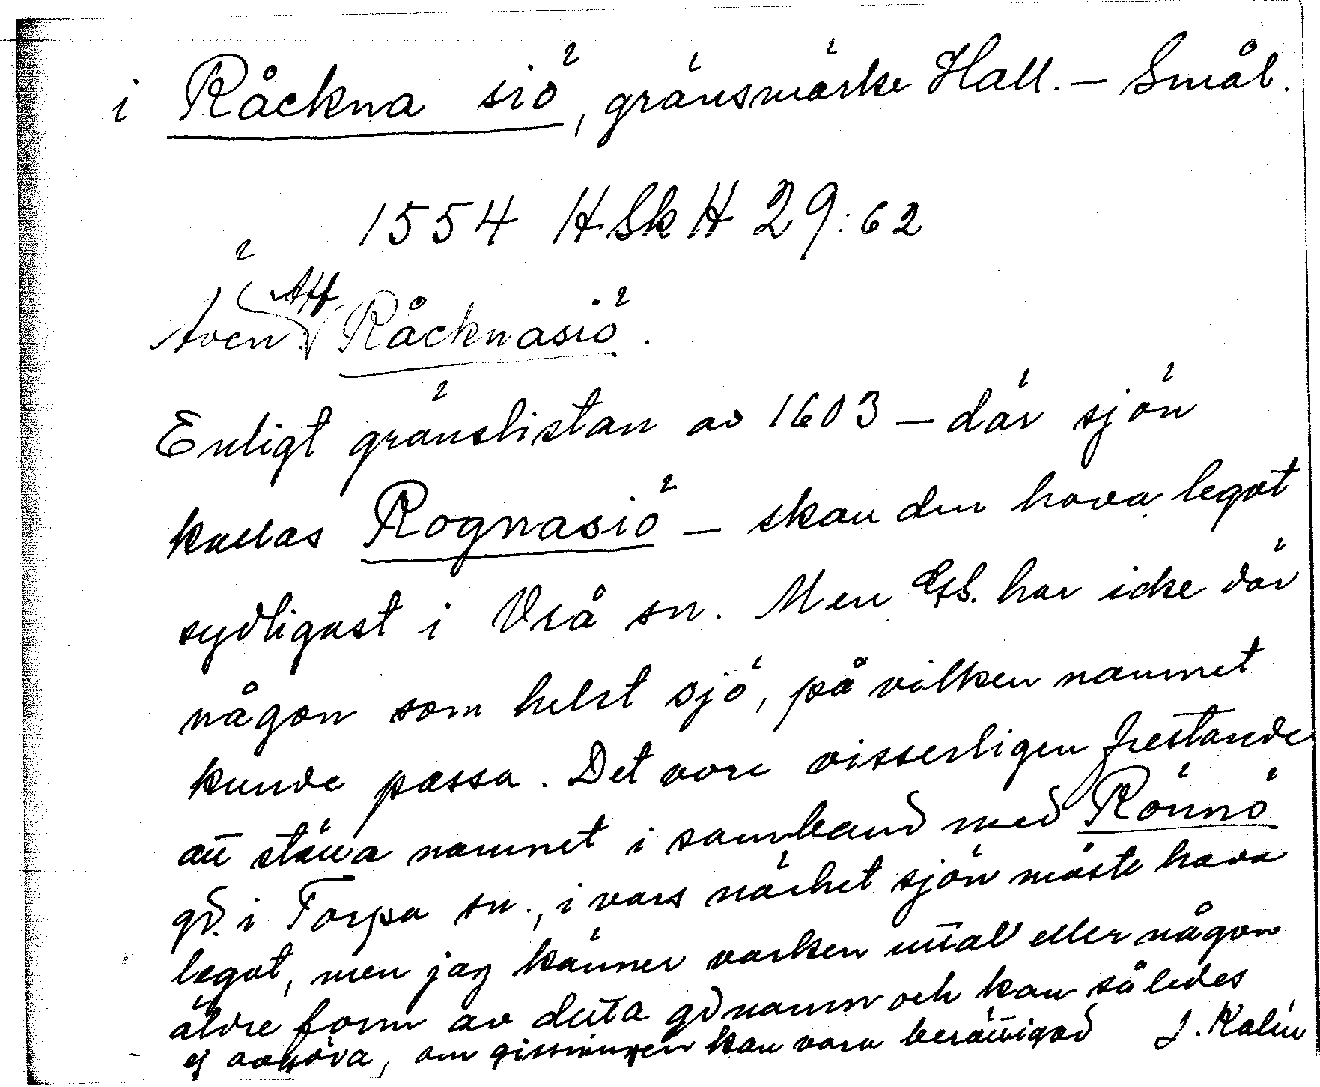 i Råckna siö, gränsmärke Hall. – Smål.
1554 HSkH 29:62
Även Aff Råcknasiö.
Enligt gränslistan av 1603 – där sjön
kallas Rognasiö – skall den hava legat
sydligast i Vrå sn. Men GfS. har icke där
någon som helst sjö, på vilken namnet
kunde passa. Det vore visserligen frestande
att ställa namnet i samband med Rönnö
gd. i Torpa sn., i vars närhet sjön måste hava
legat, men jag känner varken uttal eller någon
äldre form av detta gdnamn och kan således
ej avgöra, om gissningen kan vara berättigad J. Kalén